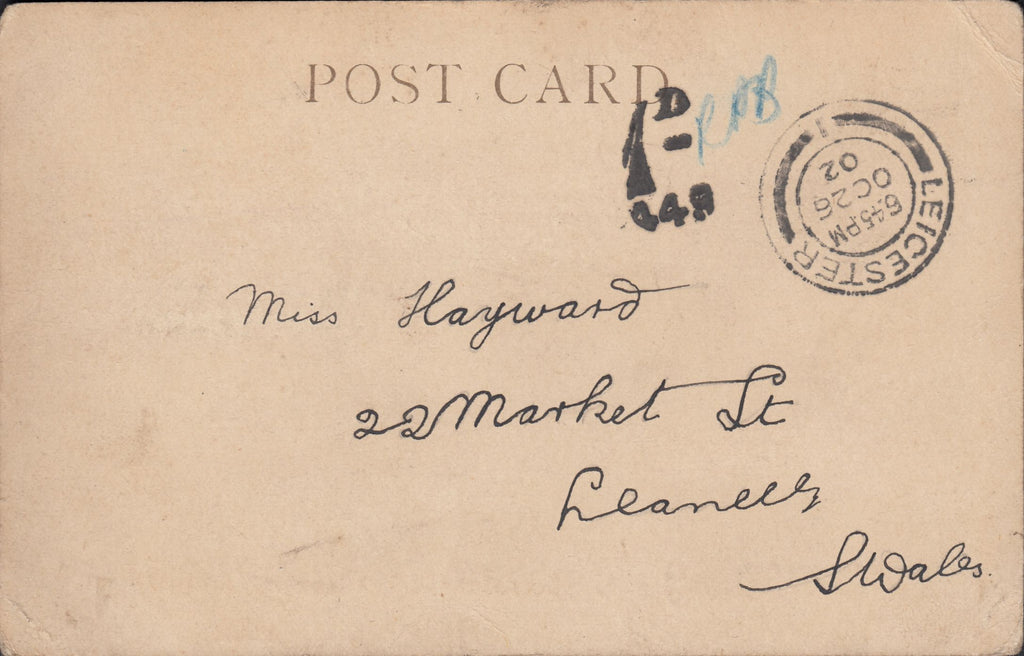 POST CARD
1D
449
LEICESTER
1
6.45 PM
OC 26
02
Miss Hayward
22 Market St
Llanelly
S Wales.